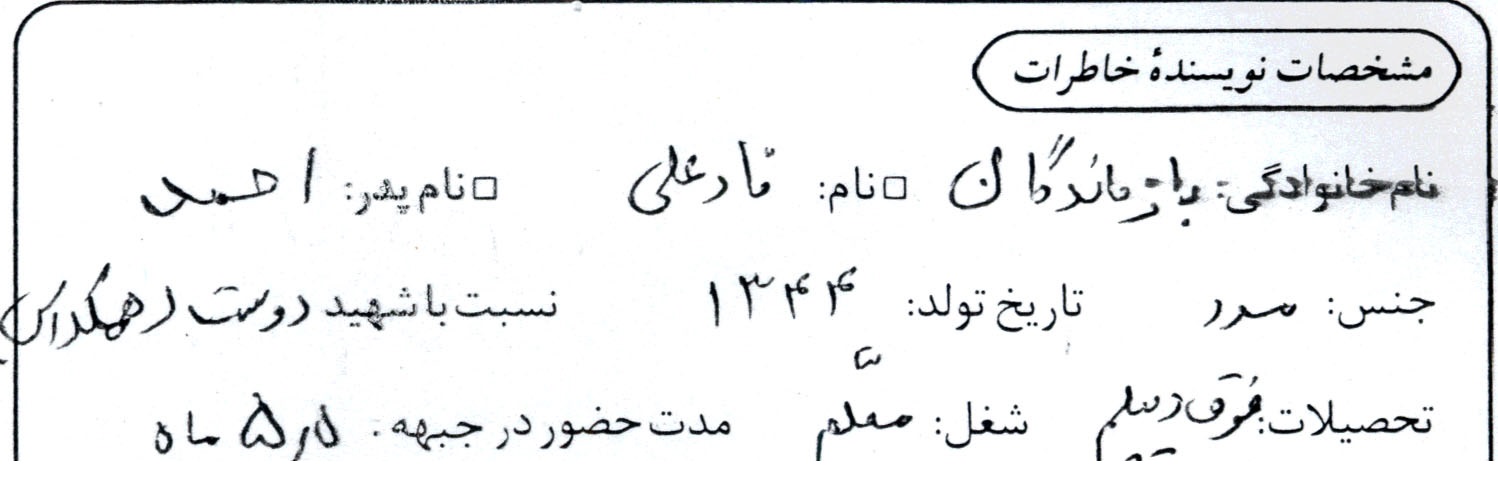 مشخصات نویسندهٔ خاطرات
نام خانوادگی: بازماندگان □ نام: قادرعلی □ نام پدر: احمد
جنس: مرد تاریخ تولد: ۱۳۴۴ نسبت با شهید دوست
تحصیلات: فوق دیپلم شغل: معلم مدت حضور در جبهه: ۵٫۵ ماه